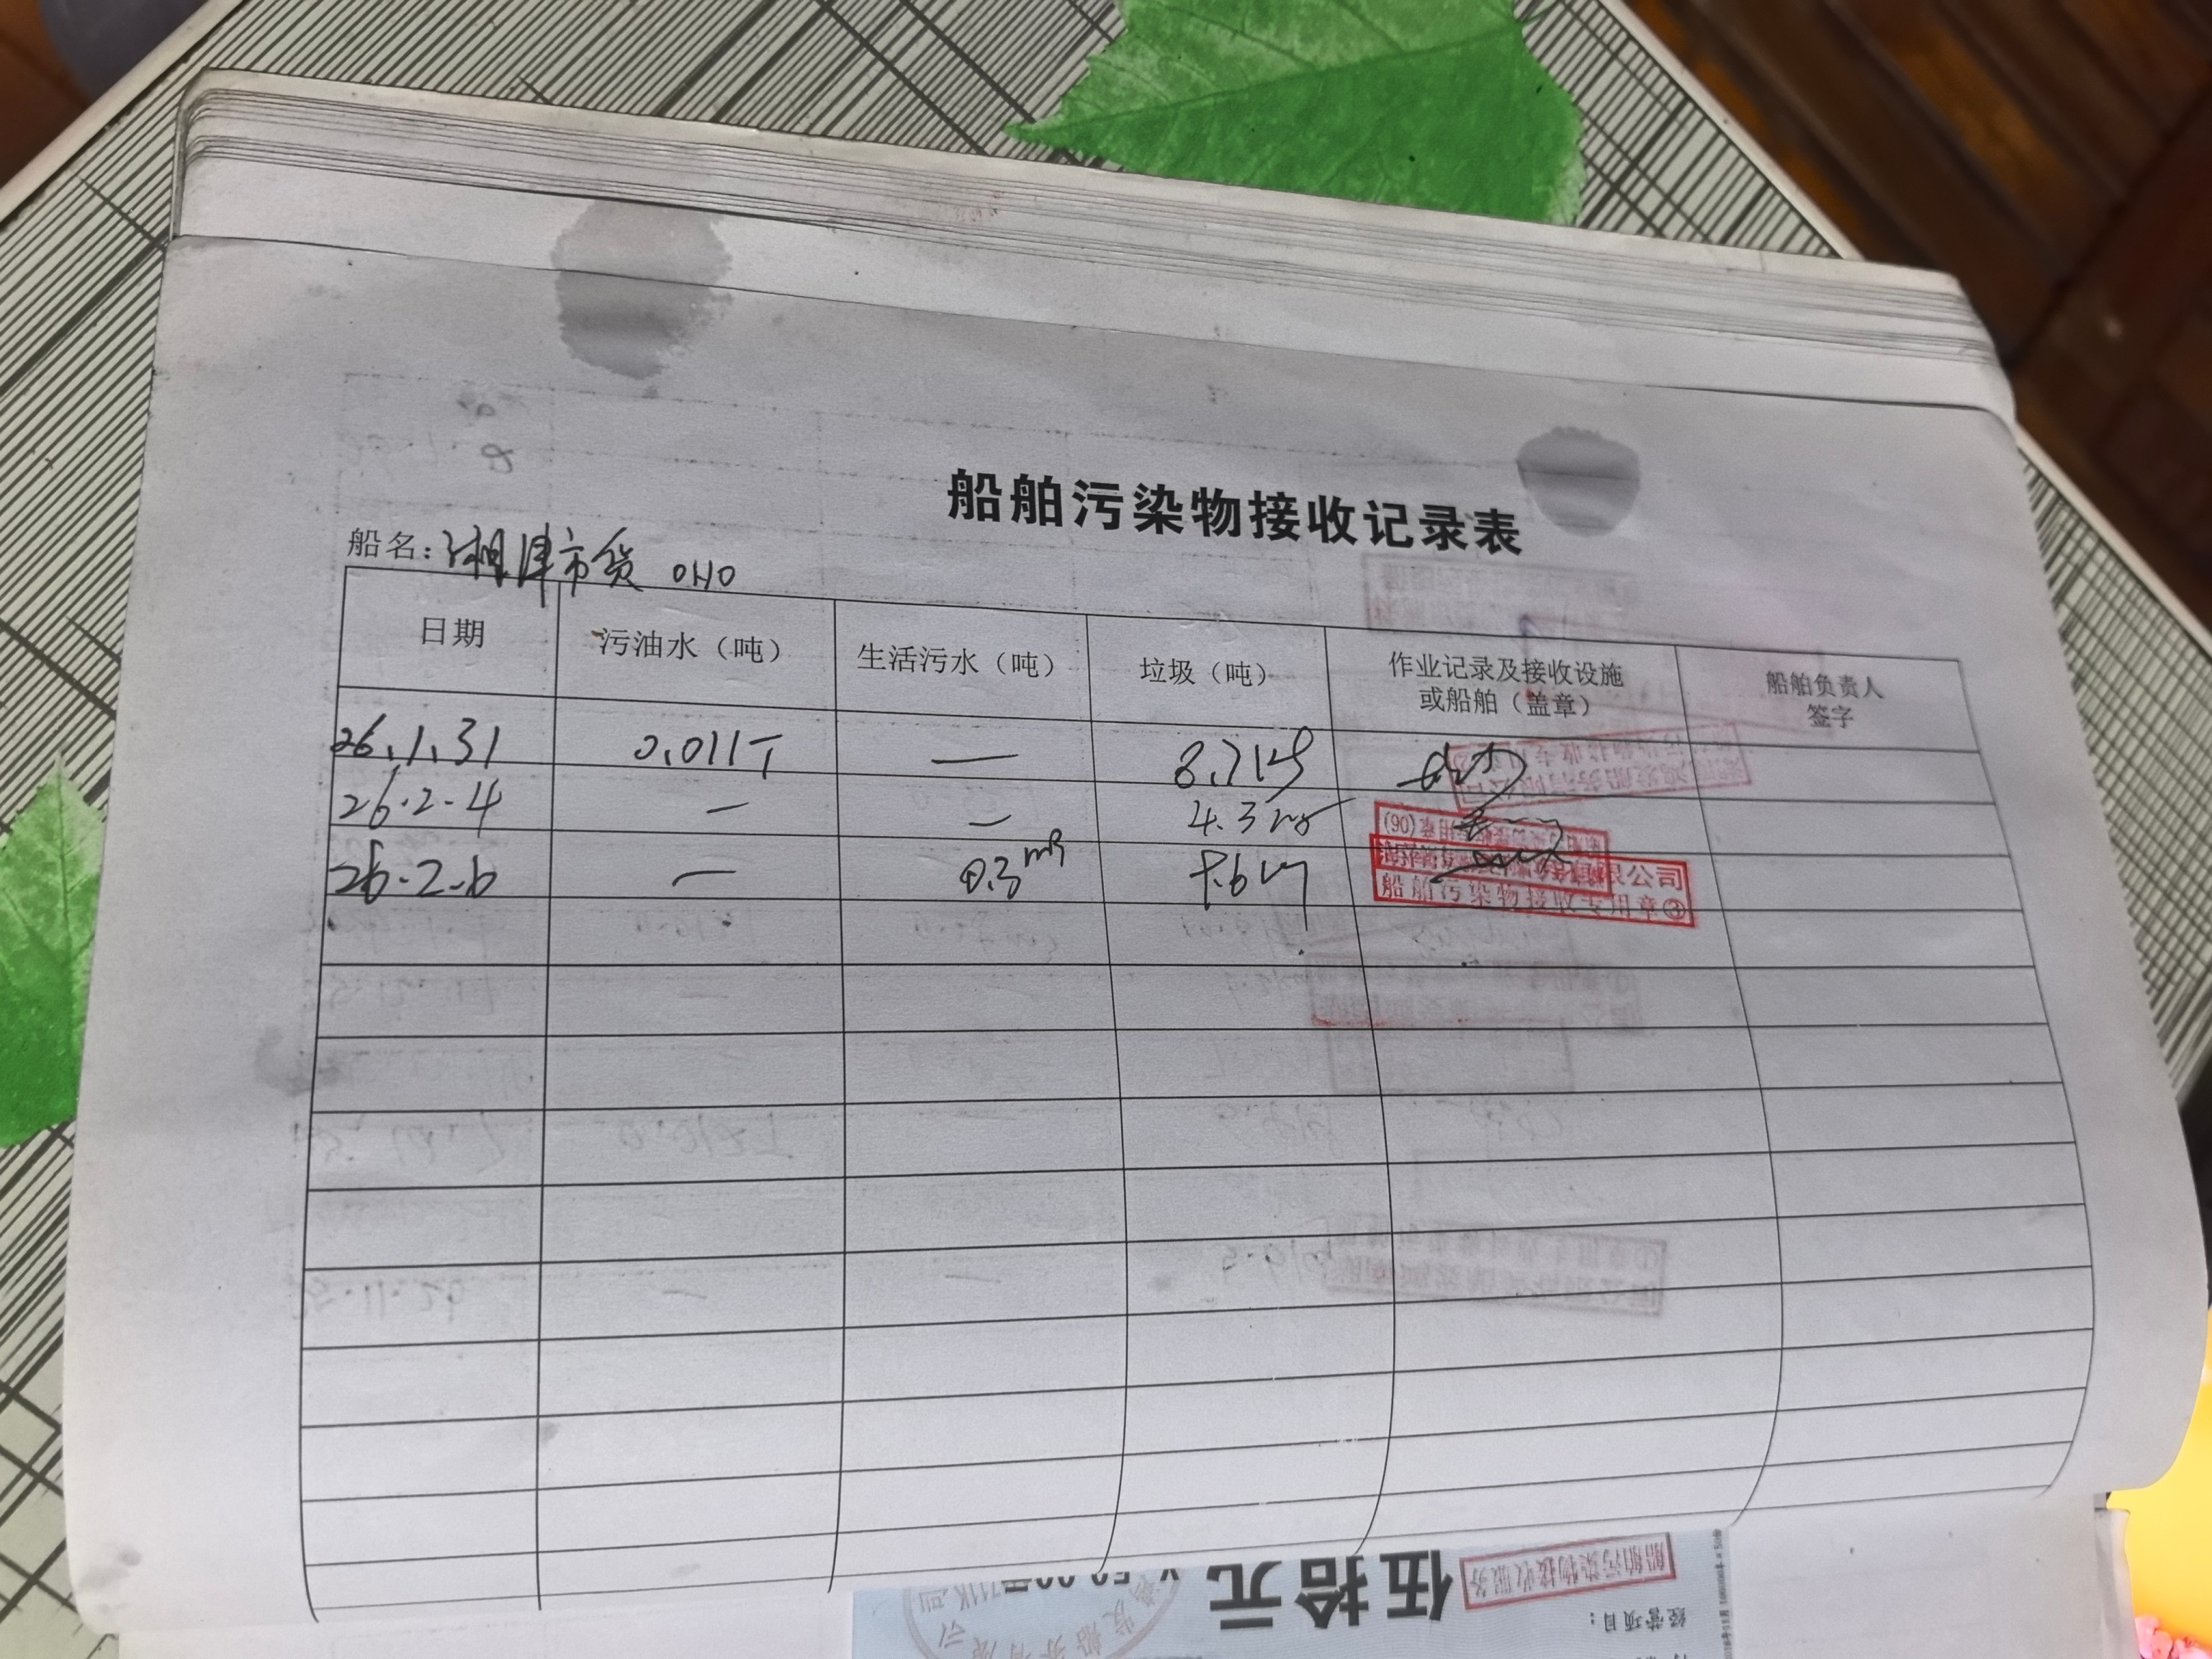 船舶污染物接收记录表
船名：湘津市货 0110
日期 污油水（吨） 生活污水（吨） 垃圾（吨） 作业记录及接收设施或船舶（盖章） 船舶负责人签字
26.1.31 0.011T — 8.7kg
26.2.4 — — 4.3kg
26.2.6 — 0.3m³
(06)
限公司
船舶污染物接收专用章③
伍拾元
船舶污染物接收服务
经营项目：